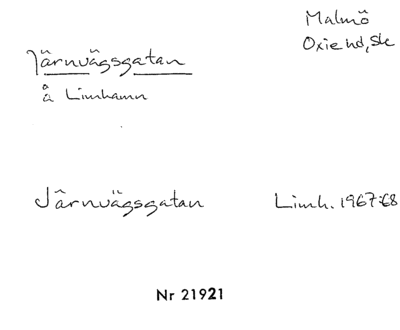 Malmö
Oxie hd, Sk
Järnvägsgatan
å Limhamn
Järnvägsgatan Limh. 1967:68
Nr 21921